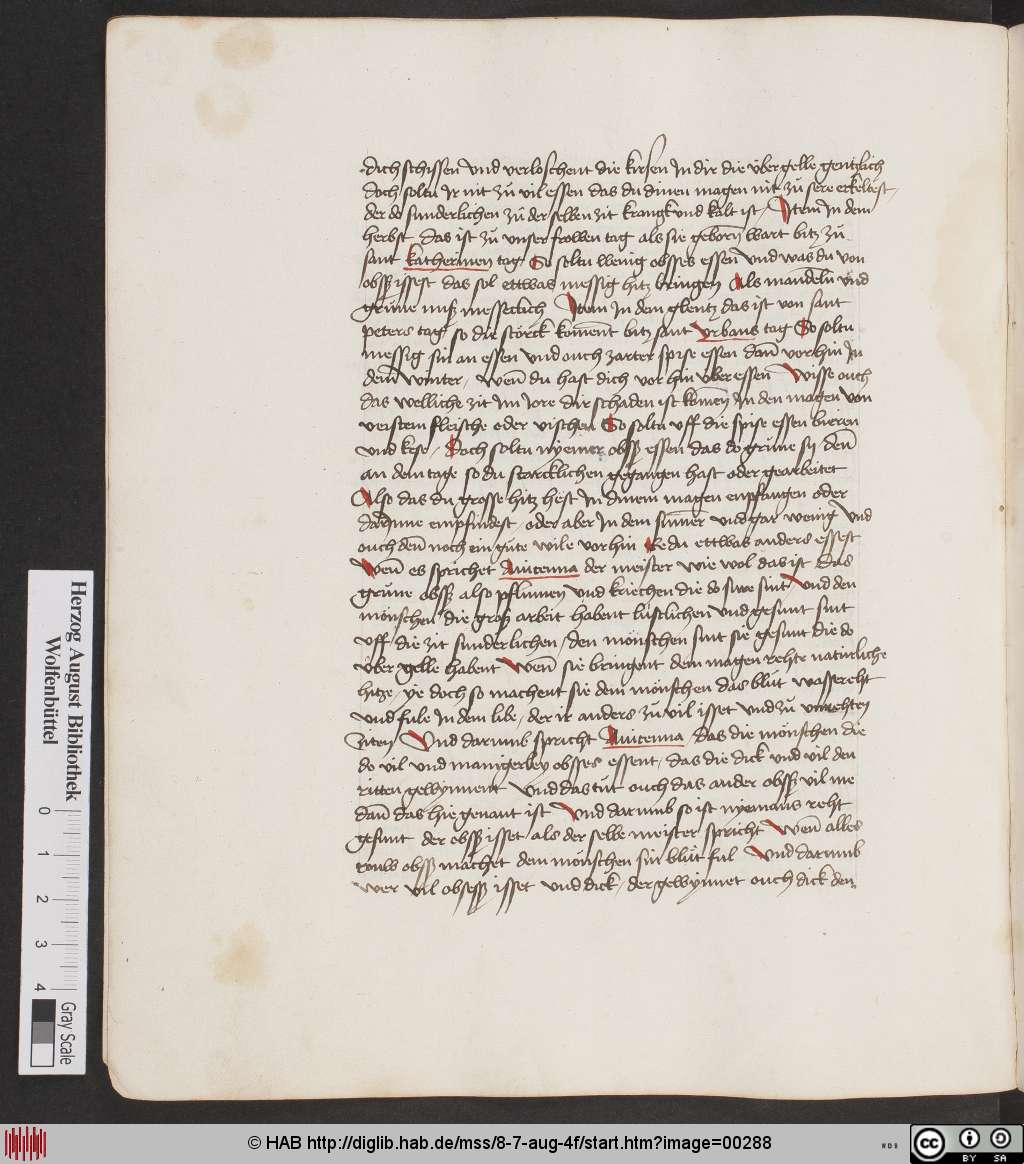 dich schissen vnd verloschent die kirsen In dir die übergelle gentzlich
doch soltu Ir nit zu vil essen das du dinen magen nit zu sere erkeltest
der do sunderlichen zu der selben zit krangk vnd kalt ist / Item In dem
herbst das ist zu vnser frowen tag als sie geborn wart bitz zu
sant katherinen tag So soltu wenig obsses essen vnd was du von
obsß issest das sol ettwas messig hitz bringen Als mandeln vnd
grüne nuß messeclich Item In dem glentz das ist von sant
peters tag so die störck koment bitz sant vrbans tag So soltu
messig sin an essen vnd ouch zarter spise essen dan vorhin In
dem winter / wen du hast dich vor hin über essen Wisse ouch
das welliche zit Im Jore dir schaden ist komen In den magen von
veistem fleische oder vischen So soltu vff die spise essen bieren
vnd kese / Doch soltu nyemer obsß essen das do grüne sy den
an dem tage so du starcklichen gegangen hast oder gearbeitet
Also das du grosse hitz hest In dinem magen empfangen oder
dar Inne empfindest / oder aber In dem summer vnd gar wenig vnd
ouch den noch ein gute wile vorhin Ee du ettwas anders essest
Wen es sprichet Auicenna der meister wie wol das ist das
grüne obsß also pflumen vnd kriechen die do suwe sint / vnd den
mönschen die groß arbeit habent lüstlichen vnd gesunt sint
vff die zit sunderlichen / den mönschen sint sie gesunt die do
über gelle habent Wen sie bringent dem magen rehte natürliche
hitze / ye doch so machent sie dem mönschen das blüt wassereht
vnd fule In dem libe / der ir anders zu vil isset vnd zu vnrehten
ziten Vnd darumb spricht Auicenna / das die mönschen die
do vil vnd manigerley obsses essent / das die dick vnd vil den
ritten gewynnent vnd das tut ouch das ander obsß vil me
dan das hie genant ist Vnd darumb so ist nyemans reht
gesunt der obsß isset als der selbe meister spricht Wen alles
rouw obsß machet dem mönschen sin blüt ful Vnd darumb
wer vil obsesß isset vnd dick / der gewynnet ouch dick den
Herzog August Bibliothek
Wolfenbüttel
0 1 2 3 4
Gray Scale
© HAB http://diglib.hab.de/mss/8-7-aug-4f/start.htm?image=00288
WDB
cc BY SA